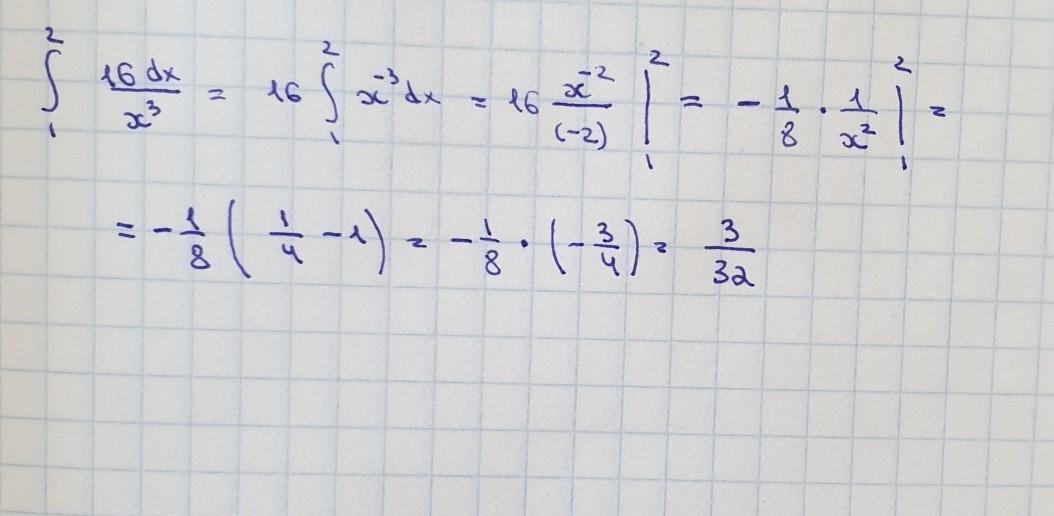 ∫₁² 16 dx / x³ = 16 ∫₁² x⁻³ dx = 16 x⁻² / (-2) |₁² = - 1/8 · 1/x² |₁² =
= - 1/8 ( 1/4 - 1 ) = - 1/8 · ( - 3/4 ) = 3/32